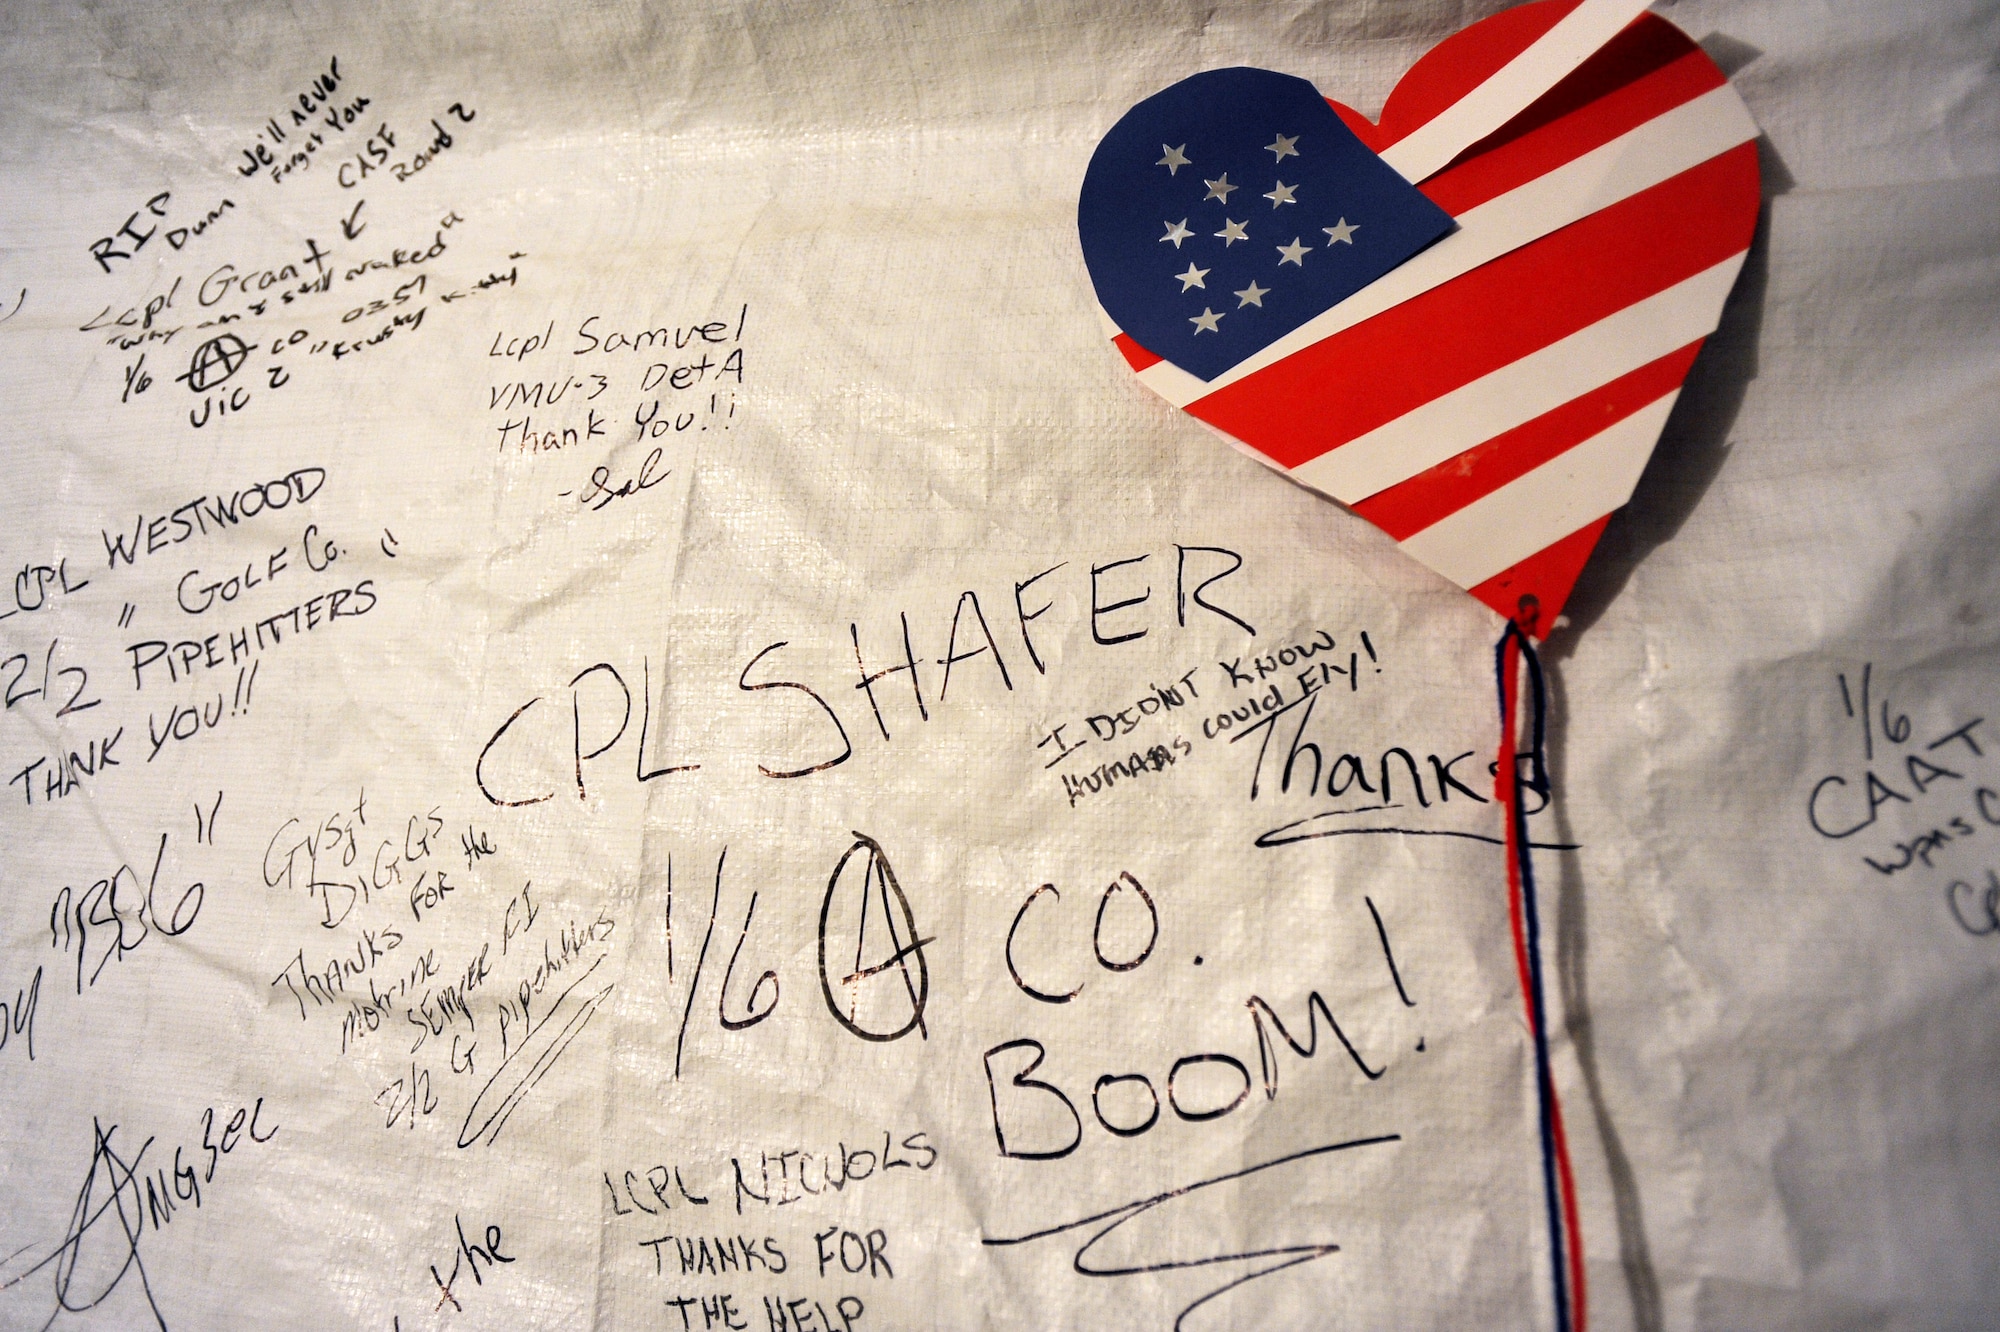 We'll never
Forget You
RIP
Dunn
CASF
Round 2
Lcpl Grant
"Why am I still naked"
1/6 A co 0351
Vic 2 "Krusty Kitty"
Lcpl Samuel
VMU-3 Det A
Thank You!!
-Sal
LCPL WESTWOOD
" GOLF Co. "
2/2 PIPEHITTERS
THANK YOU!!
CPL SHAFER
I DIDN'T KNOW
HUMANS COULD FLY!
Thanks
1/6 A CO.
BOOM!
1/6
CAAT
wpns C
Gysgt
DIGGS
THANKS FOR the
motrine
SEMPER FI
2/2 G pipehitters
LCPL NICHOLS
THANKS FOR
THE HELP
the